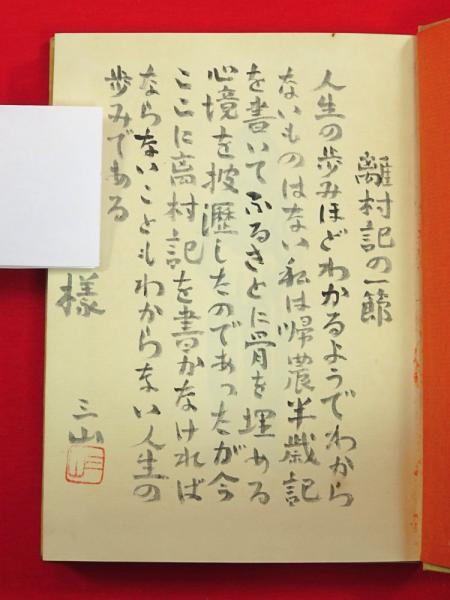 離村記の一節
人生の歩みほどわかるようでわから
ないものはない私は帰農半歳記
を書いてふるさとに骨を埋める
心境を披瀝したのであったが今
ここに离村記を書かなければ
ならないこともわからない人生の
歩みである
様
三山